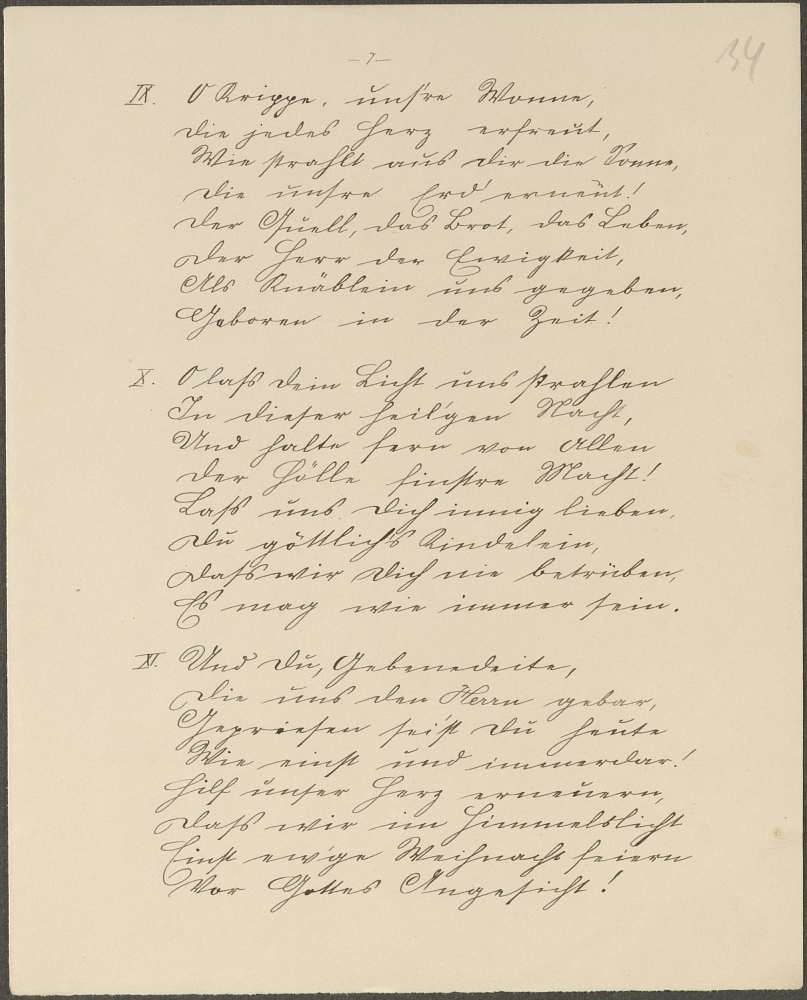 — 7 —
34
IX. O Krippe, uns're Wonne,
Die jedes Herz erfreut,
Wie strahlt aus Dir die Sonne,
Die unsre Erd' erneut!
Der Quell, das Brot, das Leben,
Der Herr der Ewigkeit,
Als Knäblein uns gegeben,
Geboren in der Zeit!
X. O lass Dein Licht uns strahlen
In dieser heil'gen Nacht,
Und halte fern von Allen
Der Hölle finstre Macht!
Lass uns Dich innig lieben,
Du göttlich's Kindelein,
Dass wir Dich nie betrüben,
Es mag wie immer sein.
XI. Und Du, Gebenedeite,
Die uns den Herrn gebar,
Gepriesen sei'st Du heute
Wie einst und immerdar!
Hilf unser Herz erneuern,
Dass wir im Himmelslicht
Einst ew'ge Weihnacht feiern
Vor Gottes Angesicht!